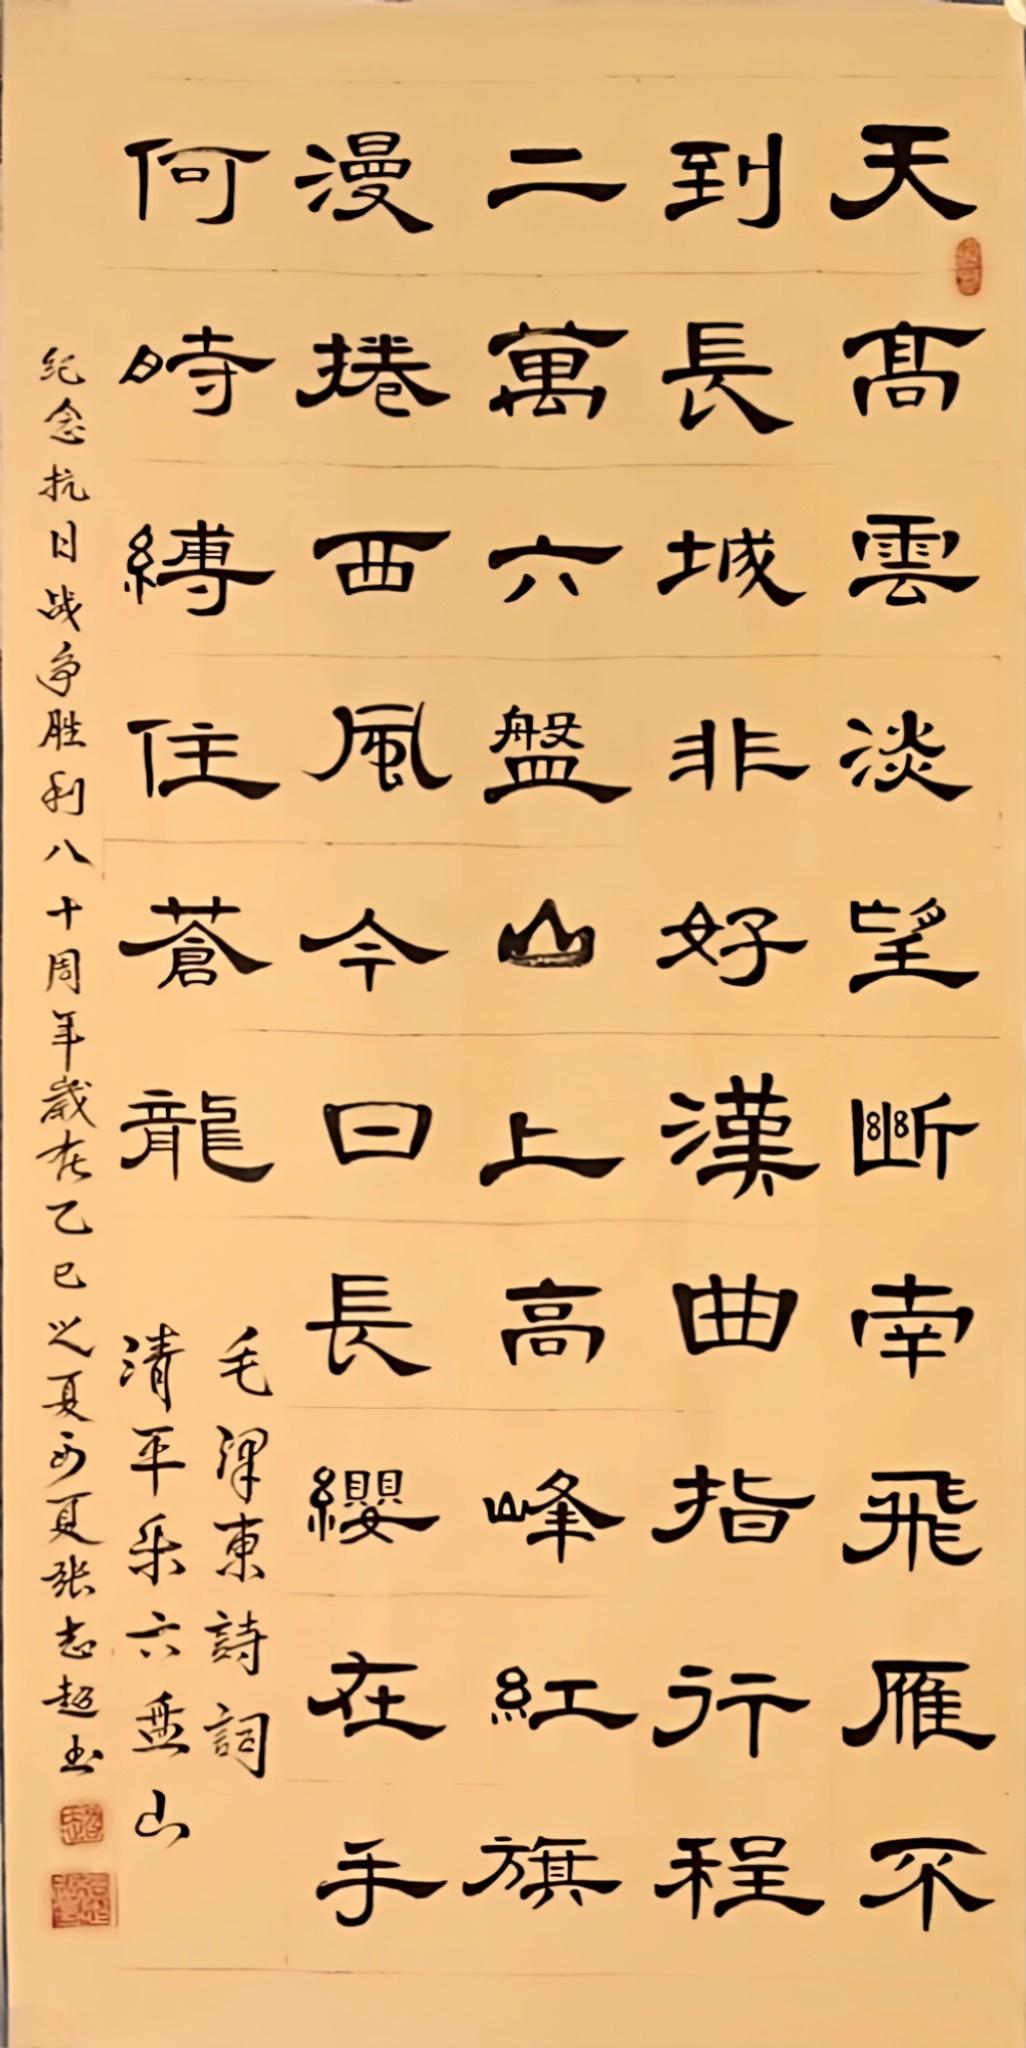 天髙雲淡望斷南飛雁不
到長城非好漢曲指行程
二萬六盤山上高峰紅旗
漫捲西風今日長纓在手
何時縛住蒼龍
毛泽東詩詞
清平乐六盘山
纪念抗日战争胜利八十周年歲在乙巳之夏夏张志超书